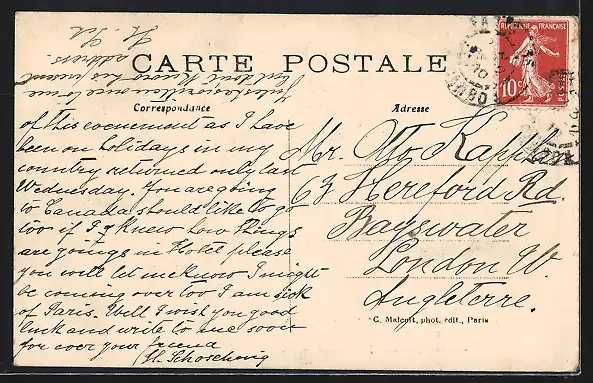 CARTE POSTALE
Correspondance
Adresse
REPUBLIQUE FRANÇAISE
10c
POSTES
of this evenement as I have
been on holidays in my
country returned only last
Wednesday. You are going
to Canada should like to go
too if I knew how things
are goings in Hotel please
you will let me know I might
be coming over too I am sick
of Paris. Well I wish you good
luck and write to me soon
for ever your friend
Mr. Otto Kapp
63 Hereford Rd.
Bayswater
London W.
Angleterre.
C. Malcuit, phot. édit., Paris
address.